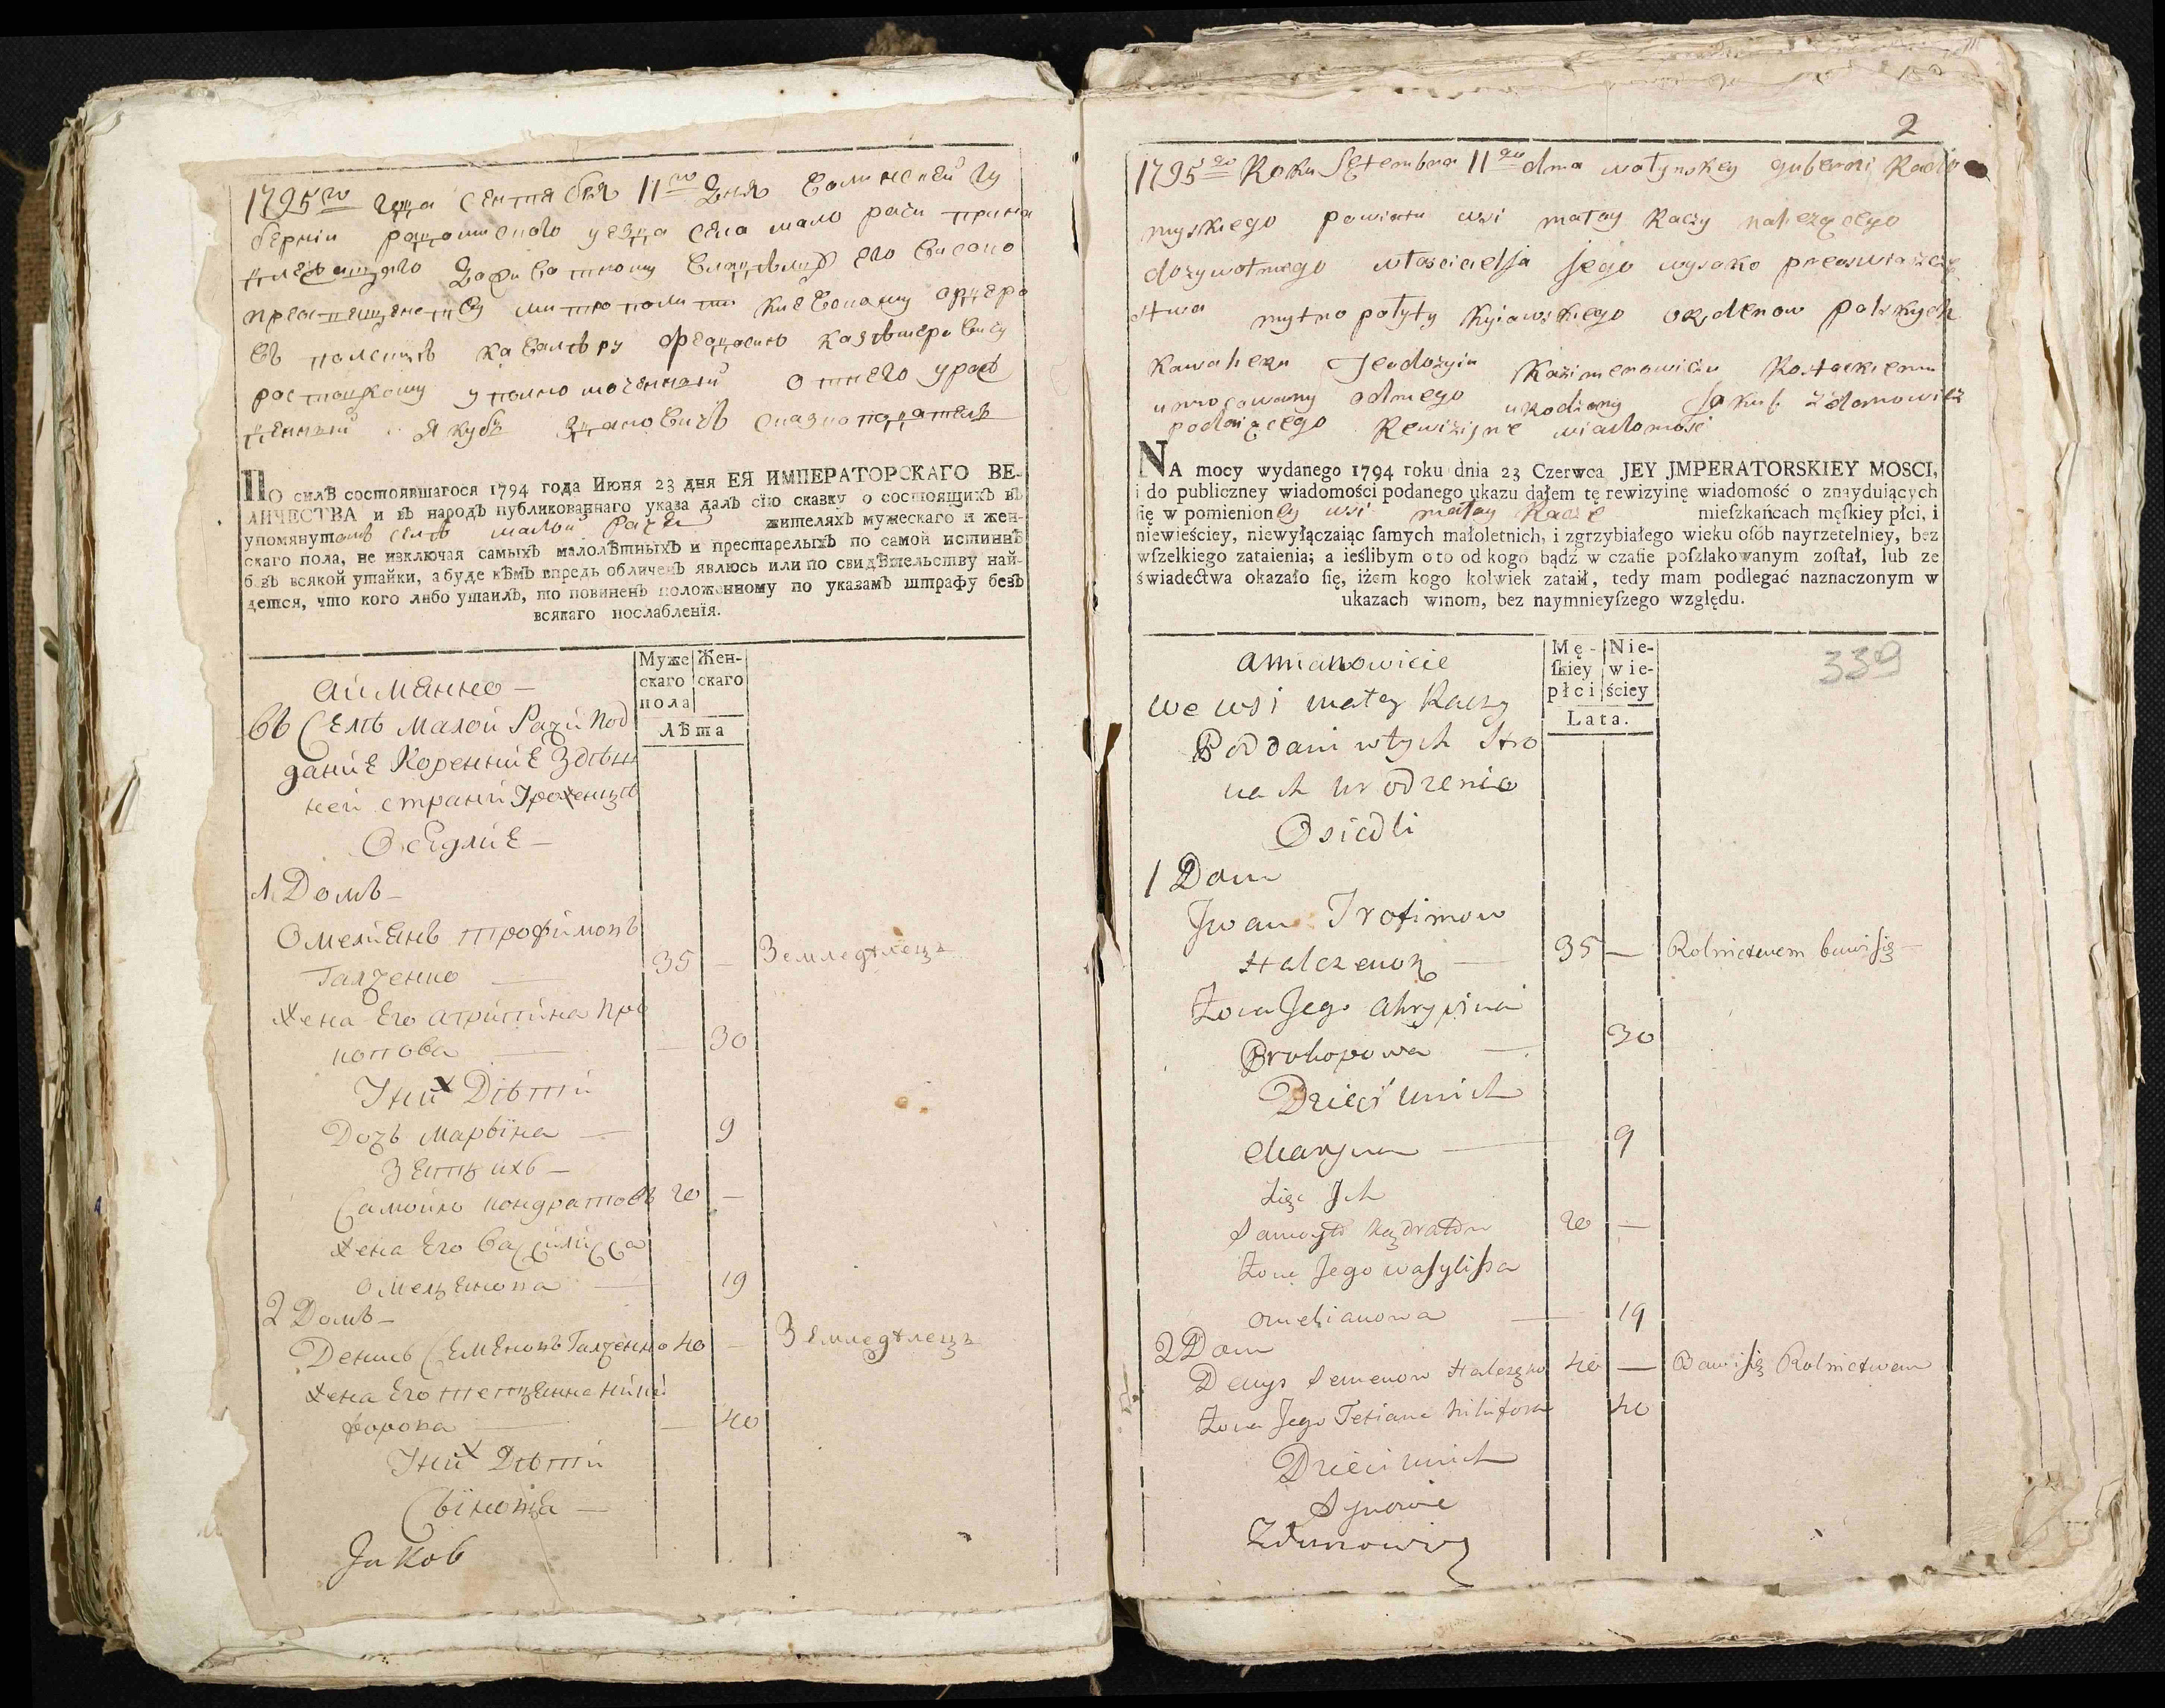 1795го года Сентября 11го Дня Волинской гу
бернїи радомисного уезда села мало рачи прина
длежащаго
преосвещенству митрополити киевскому ордеро
въ полскихъ кавалѣру Феодосию казѣмеровичу
ростоцкому уполномоченный отнего урож
денный Якубъ Здановичъ сказкоподатель
ПО силѣ состоявшагося 1794 года Июня 23 дня ЕЯ ИМПЕРАТОРСКАГО ВЕ-
ЛИЧЕСТВА и въ народъ публикованнаго указа далъ сїю сказку о состоящихъ въ
упомянутомъ селѣ малой Рачи жителяхъ мужескаго и жен-
скаго пола, не изключая самыхъ малолѣтныхъ и престарелыхъ по самой истиннѣ
безъ всякой утайки, а буде кѣмъ впредь обличенъ явлюсь или по свидѣтельству най-
дется, что кого либо утаилъ, то повиненъ положенному по указамъ штрафу безъ
всякаго послабленїя.
Муже Жен-
скаго скаго
пола
Лѣта
аимянно —
въ Селѣ Малой Рачи под
данїе Коренние Здѣш
ней страни Уроженцѣ
Оседлие —
1 Домъ —
Омелиянъ трофимовъ
Галченко — 35 — Земледѣлецъ
жена Его агрипина про
копова — — 30
У них Дѣти
Дочь Марвїна — 9
зять ихъ —
Самойло кондратовъ 20 —
жена Его Василисса
омелянова — 19
2 Домъ —
Денисъ Семеновъ Галченко 40 — Земледѣлецъ
жена Его тетянна ники
форова — — 40
У них Дѣти
Сїновя —
Jakob
2
1795go Roku Septembra 11go dnia wołynskey gubernii Rado
myskiego powiatu wsi małey Raczy należącego
dożywotniego właścicielja jego wysoko preoswiaszcze
stwa mytropolyty kyiawskiego orzdenow polskych
kawaleru Teodozyiu Kazimerowiczu Rostockiemu
umocowany odniego urodzony Jakub Zdanowicz
podaiącego Rewizijne wiadomosć
NA mocy wydanego 1794 roku dnia 23 Czerwca JEY JMPERATORSKIEY MOSCI,
i do publiczney wiadomości podanego ukazu dałem tę rewizyinę wiadomość o znayduiących
ſię w pomienioney wsi małey Racze mieſzkańcach męſkiey płci, i
niewieściey, niewyłączaiąc ſamych małoletnich, i zgrzybiałego wieku oſób nayrzetelniey, bez
wſzelkiego zataienia; a ieślibym oto od kogo bądź w czaſie poſzlakowanym zoſtał, lub ze
świadectwa okazało ſię, iżem kogo kolwiek zataił, tedy mam podlegać naznaczonym w
ukazach winom, bez naymnieyſzego względu.
Mę- Nie-
ſkiey wie-
płci ściey
Lata.
339
amianowicie
we wsi małey Raczy
Poddani wtych stro
nach urodzenia
Osiedli
1 Dom
Jwan Trofimow
Halczenoz — 35 — Rolnictwem bawi się —
Żona Jego Ahrypina
Prokopowa — 30
Dzieci unich
Maryna — 9
zięć Jch
Samoyło Kądratow 20 —
Żona Jego wasylissa
omelianowa — 19
2 Dom
Denys Semenow Halczęko 40 — Bawi się Rolnictwem
Żona Jego Tetiana Nikiforow 40
Dzieci unich
Synowie
Zdanowicz